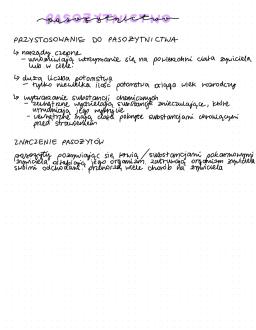 pasożytnictwo
PRZYSTOSOWANIE DO PASOŻYTNICTWA
↳ narządy czepne
- umożliwiają utrzymanie się na powierzchni ciała żywiciela
lub w ciele
↳ duża liczba potomstwa
- tylko niewielka ilość potomstwa osiąga wiek dorosły
↳ wytwarzanie substancji chemicznych
- zewnętrzne wydzielają substancje znieczulające, które
utrudniają jego wykrycie
- wewnętrzne mają ciała pokryte substancjami chroniącymi
przed strawieniem
ZNACZENIE PASOŻYTÓW
pasożyty pożywiając się krwią / substancjami pokarmowymi
żywiciela osłabiają jego organizm, zatruwają organizm żywiciela
swoimi odchodami, przenoszą wiele chorób na żywiciela